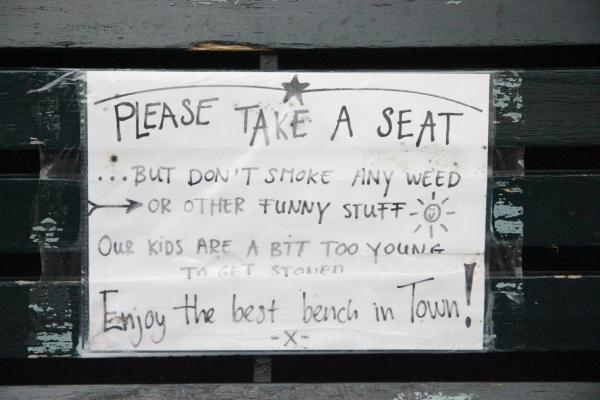 PLEASE TAKE A SEAT
...BUT DON'T SMOKE ANY WEED
OR OTHER FUNNY STUFF-
OUR KIDS ARE A BIT TOO YOUNG
TO GET STONED
Enjoy the best bench in Town!
-X-